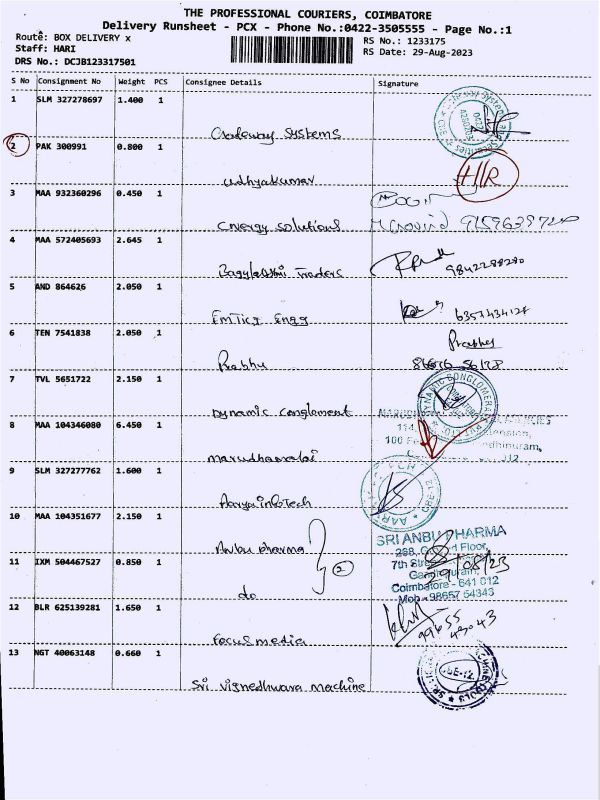 THE PROFESSIONAL COURIERS, COIMBATORE
Delivery Runsheet - PCX - Phone No.:0422-3505555 - Page No.:1
Route: BOX DELIVERY x
RS No.: 1233175
Staff: HARI
RS Date: 29-Aug-2023
DRS No.: DCJB123317501
S No Consignment No Weight PCS Consignee Details Signature
1 SLM 327278697 1.400 1
Systems
2 PAK 300991 0.800 1
udhyakumar
H//R
3 MAA 932360296 0.450 1
Cnergy solutions
M Govind
4 MAA 572405693 2.645 1
Traders
9842288280
5 AND 864626 2.050 1
Engg
6 TEN 7541838 2.050 1
Prabhu
Prabhu
7 TVL 5651722 2.150 1
Dynamic conglement
DYNAMIC CONGLOMERATE
8 MAA 104346080 6.450 1
114,
100 Fe
marudhamalai
9 SLM 327277762 1.600 1
CBE-12
Aarya infoTech
10 MAA 104351677 2.150 1
Anbu pharma
2
SRI ANBU PHARMA
268, Floor,
11 IXM 504467527 0.850 1
7th Street
29/08/23
do
Coimbatore - 641 012
Mob - 98657 54343
12 BLR 625139281 1.650 1
99655 43043
Focus media
13 NGT 40063148 0.660 1
CBE-12
Sri vigneshwara machine